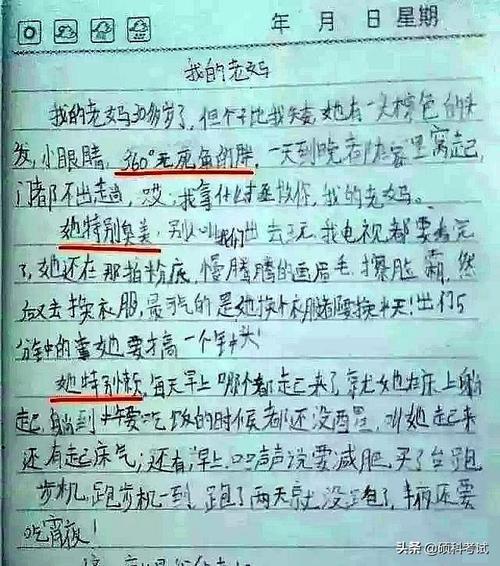 年 月 日 星期
我的老妈
我的老妈30多岁了，但个子比我矮，她有一头棕色的头
发，小眼睛，360°无死角的胖，一天到晚都在家里窝起，
门都不出走尚，哎，我拿什么拯救你，我的老妈。
她特别臭美，别人叫我们出去玩，我电视都要看完
了，她还在那拍粉底，慢腾腾的画眉毛，擦脸霜，然
后又去换衣服，最气的是她换个衣服都要换半天！出门5
分钟的事她要才高一个钟头！
她特别懒，每天早上哪个都走起来了，就她在床上躺
起，躺到中午要吃饭的时候都还没两醒，叫她走起来
还有起床气；还有，早上口口声声说要减肥，买了台跑
步机，跑步机一到，跑了两天就没跑了，半夜还要
吃宵夜！
头条 @硕科考试